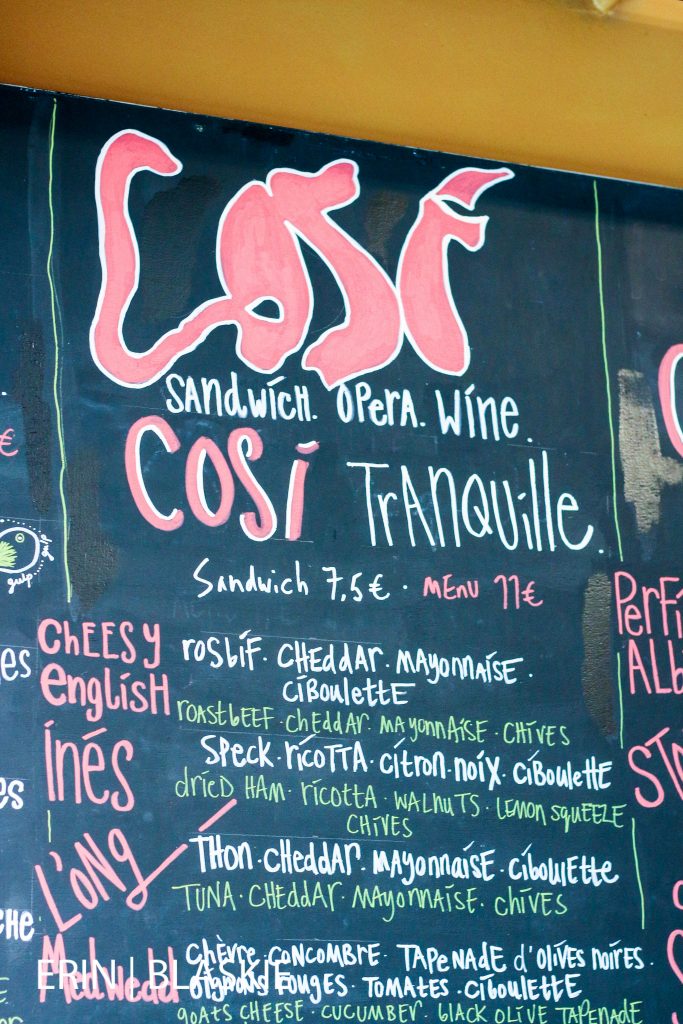 COSI
SANDWICH. OPERA. WINE.
COSI TRANQUILLE.
Sandwich 7,5€ · MENU 11€
€
gulp... gulp
CHEESY
ENGLISH
ROSBIF. CHEDDAR. MAYONNAISE.
CIBOULETTE
ROASTBEEF. CHEDDAR. MAYONNAISE. CHIVES
INÉS
SPECK. RICOTTA. CITRON. NOIX. CIBOULETTE
DRIED HAM. RICOTTA. WALNUTS. LEMON SQUEEZE
CHIVES
L'ONG
THON. CHEDDAR. MAYONNAISE. CIBOULETTE
TUNA. CHEDDAR. MAYONNAISE. CHIVES
Medwedd
CHÈVRE CONCOMBRE. TAPENADE d'OLIVES NOIRES.
OIGNONS ROUGES. TOMATES. CIBOULETTE
GOATS CHEESE. CUCUMBER. BLACK OLIVE TAPENADE
ERIN | BLASKIE